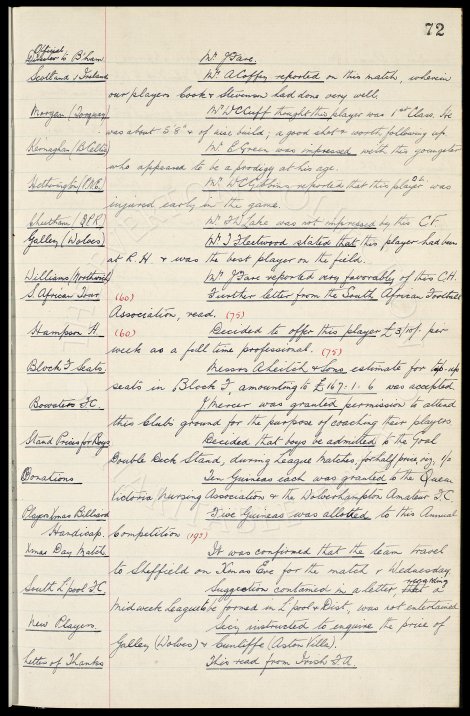 72
Official
Director to B'ham. Mr J Fare.
Scotland v Ireland Mr A Coffey reported on this match, wherein
our players Cook & Stevenson had done very well.
Morgan (Torquay) Mr W C Cuff thought this player was 1st Class. He
was about 5'8" & of nice build; a good shot & worth following up.
Kernaghan (B.Celtic) Mr E Green was impressed with this youngster
who appeared to be a prodigy at his age.
Hetherington (P.N.E.) Mr W C Gibbins reported that this player O.L. was
injured early in the game.
Cheetham (Q.P.R.) Mr F W Lake was not impressed by this C.F.
Galley (Wolves) Mr T Fleetwood stated that this player had been
at R.H. & was the best player on the field.
Williams (Northwich) Mr J Fare reported very favorably of this C.H.
S African Tour (60) Further letter from the South African Football
Association, read. (75)
Hampson A. (60) Decided to offer this player £3/10/- per
week as a full time professional. (75)
Block F. Seats. Messrs A Leitch & Sons estimate for tip-up
seats in Block F, amounting to £167.1.6 was accepted
Bowaters F.C. J Mercer was granted permission to attend
this Clubs ground for the purpose of coaching their players
Stand Prices for Boys Decided that boys be admitted to the Goal
Double Deck Stand, during League Matches, for half price viz, 1/-
Donations Ten Guineas each was granted to the Queen
Victoria Nursing Association & the Wolverhampton Amateur F.C.
Players Xmas Billiard Five Guineas was allotted to this Annual
Handicap. Competition (195)
Xmas Day Match. It was confirmed that the team travel
to Sheffield on Xmas Eve for the match v Wednesday.
South L'pool F.C. Suggestion contained in a letter regarding that a
Midweek League be formed in L'pool & Dist, was not entertained
New Players. Secy instructed to enquire the price of
Galley (Wolves) & Cunliffe (Aston Villa).
Letter of Thanks This read from Irish F.A.